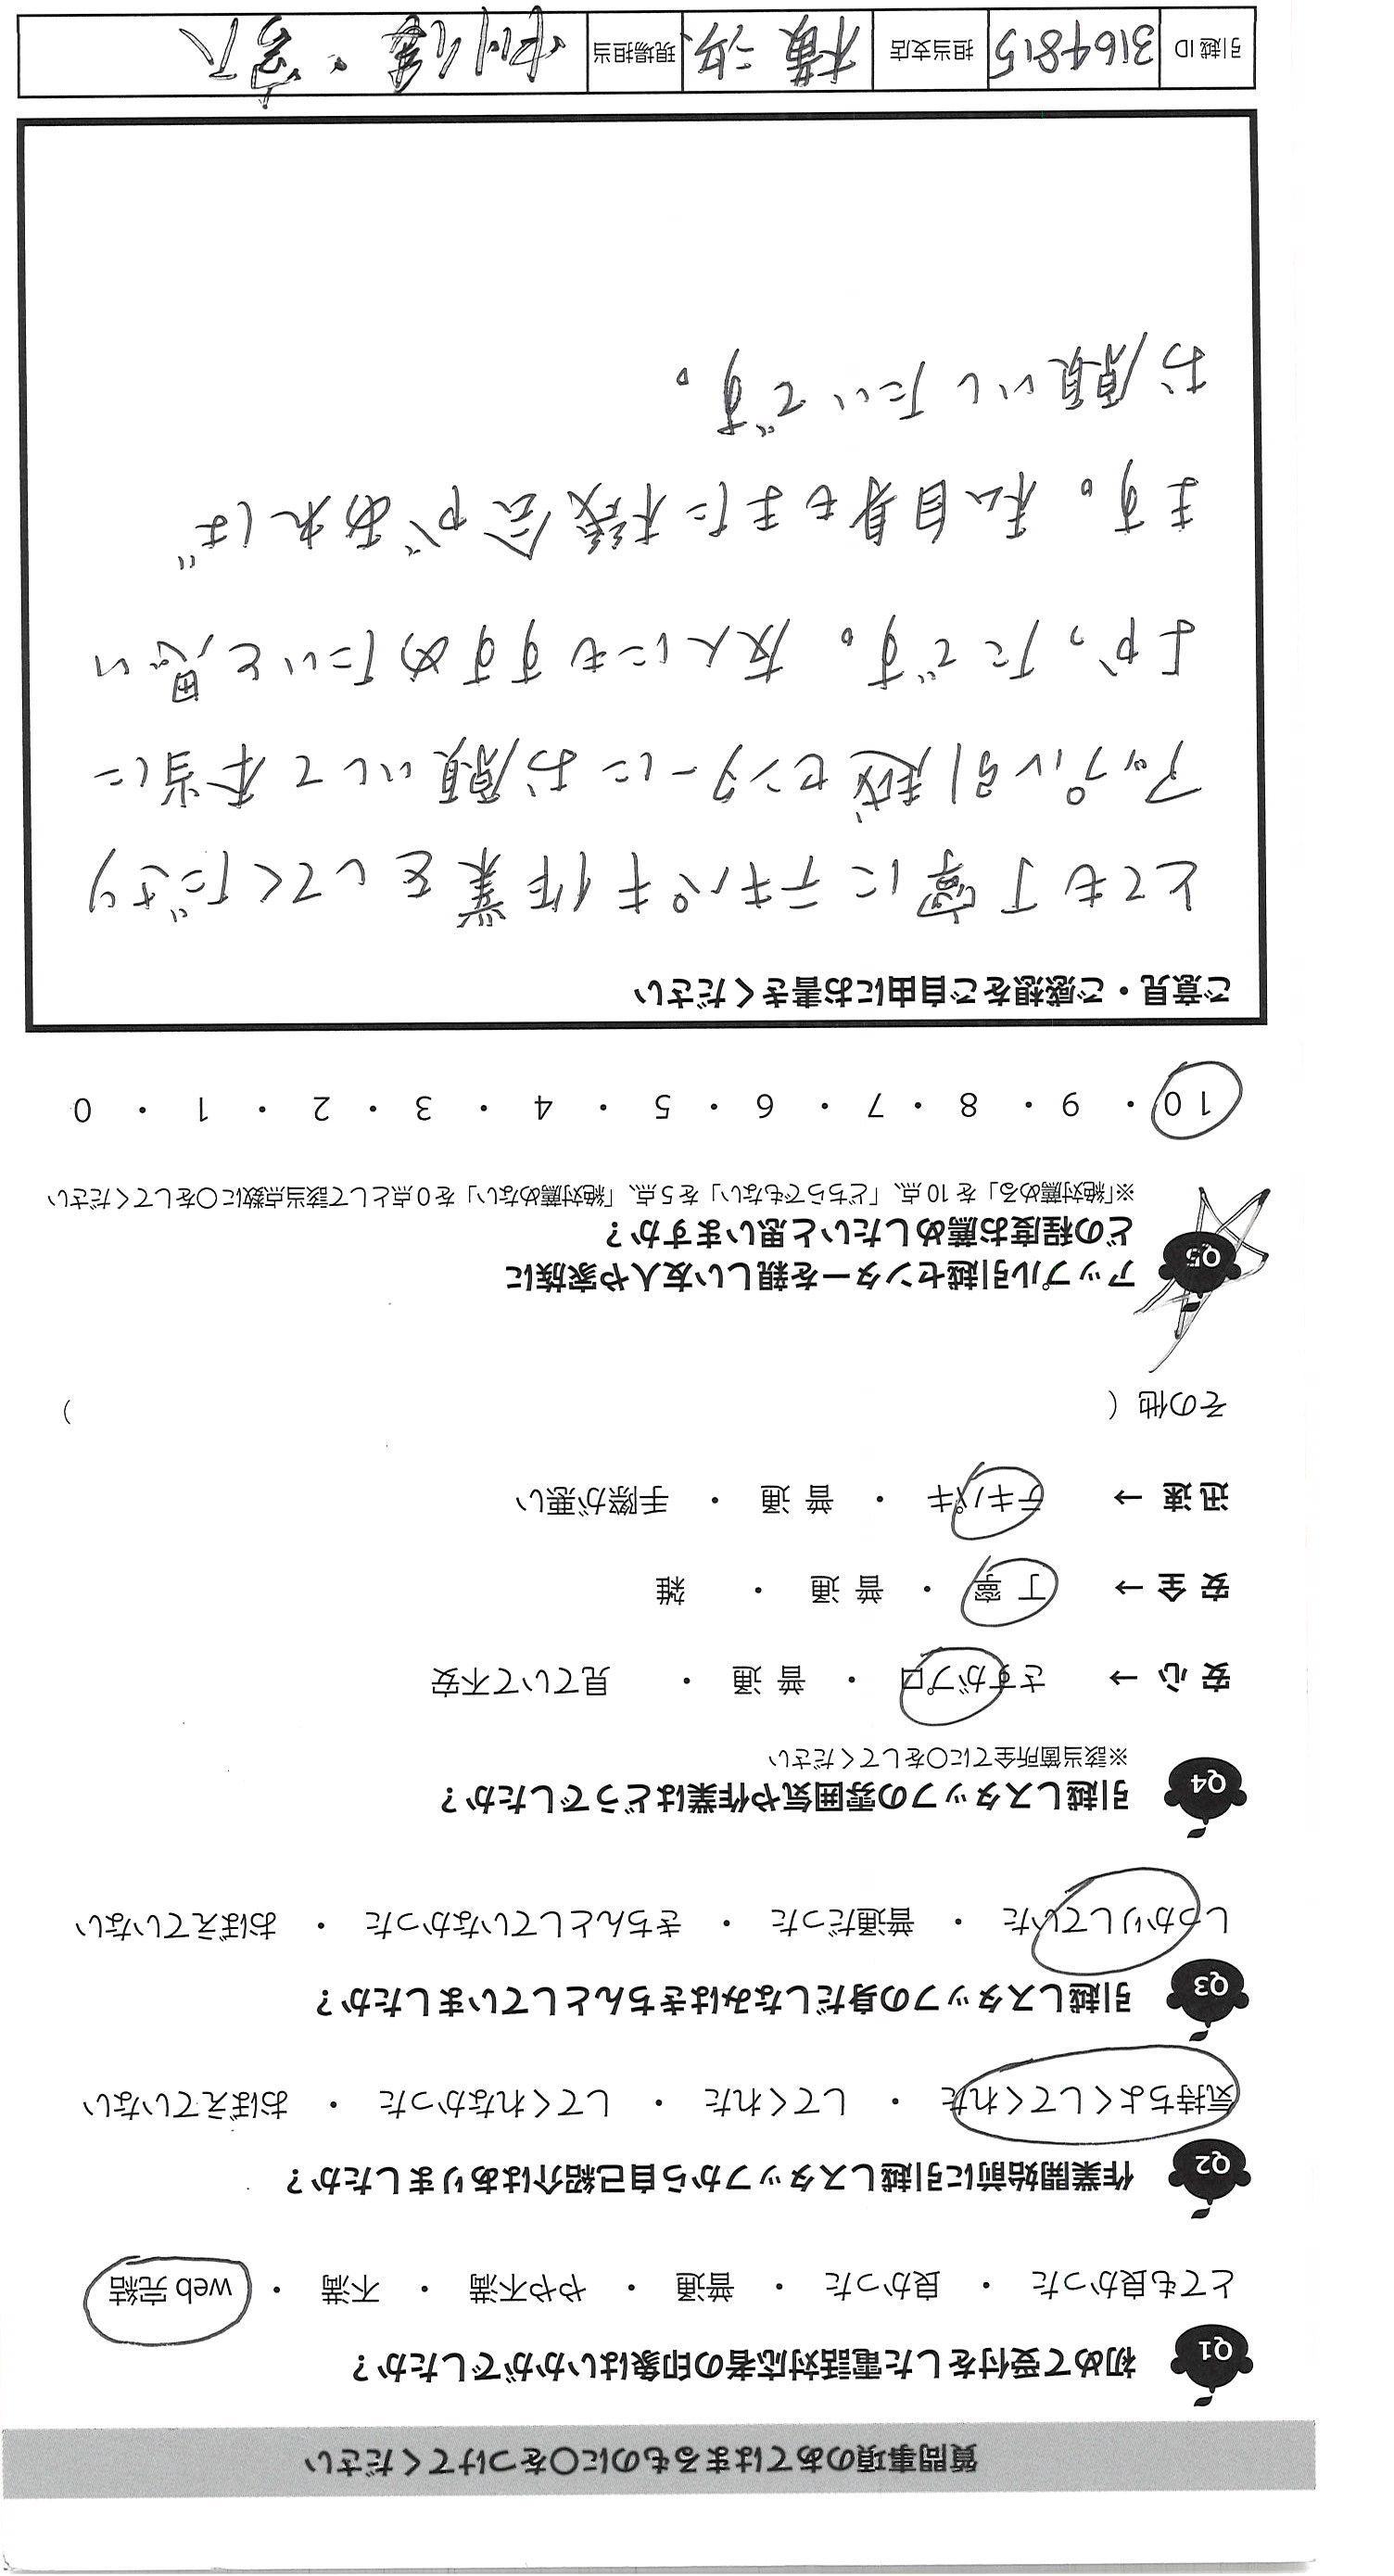 質問事項のあてはまるものに○をつけてください
Q1 初めて受付をした電話対応者の印象はいかがでしたか？
とても良かった ・ 良かった ・ 普通 ・ やや不満 ・ 不満 ・ web 完結
Q2 作業開始前に引越しスタッフから自己紹介はありましたか？
気持ちよくしてくれた ・ してくれた ・ してくれなかった ・ おぼえていない
Q3 引越しスタッフの身だしなみはきちんとしていましたか？
しっかりしていた ・ 普通だった ・ きちんとしていなかった ・ おぼえていない
Q4 引越しスタッフの雰囲気や作業はどうでしたか？
※該当箇所全てに○をしてください
安心 → さすがプロ ・ 普通 ・ 見ていて不安
安全 → 丁寧 ・ 普通 ・ 雑
迅速 → テキパキ ・ 普通 ・ 手際が悪い
その他（ ）
Q5 アップル引越センターを親しい友人や家族に
どの程度お薦めしたいと思いますか？
※「絶対薦める」を10点、「どちらでもない」を5点、「絶対薦めない」を0点として該当点数に○をしてください
10 ・ 9 ・ 8 ・ 7 ・ 6 ・ 5 ・ 4 ・ 3 ・ 2 ・ 1 ・ 0
ご意見・ご感想をご自由にお書きください
とても丁寧にテキパキ作業をしてくださり
アップル引越センターにお願いして本当に
よかったです。友人にもすすめたいと思い
ます。私自身もまた機会があれば
お願いしたいです。
引越ID 3164815 担当支店 横浜 現場担当